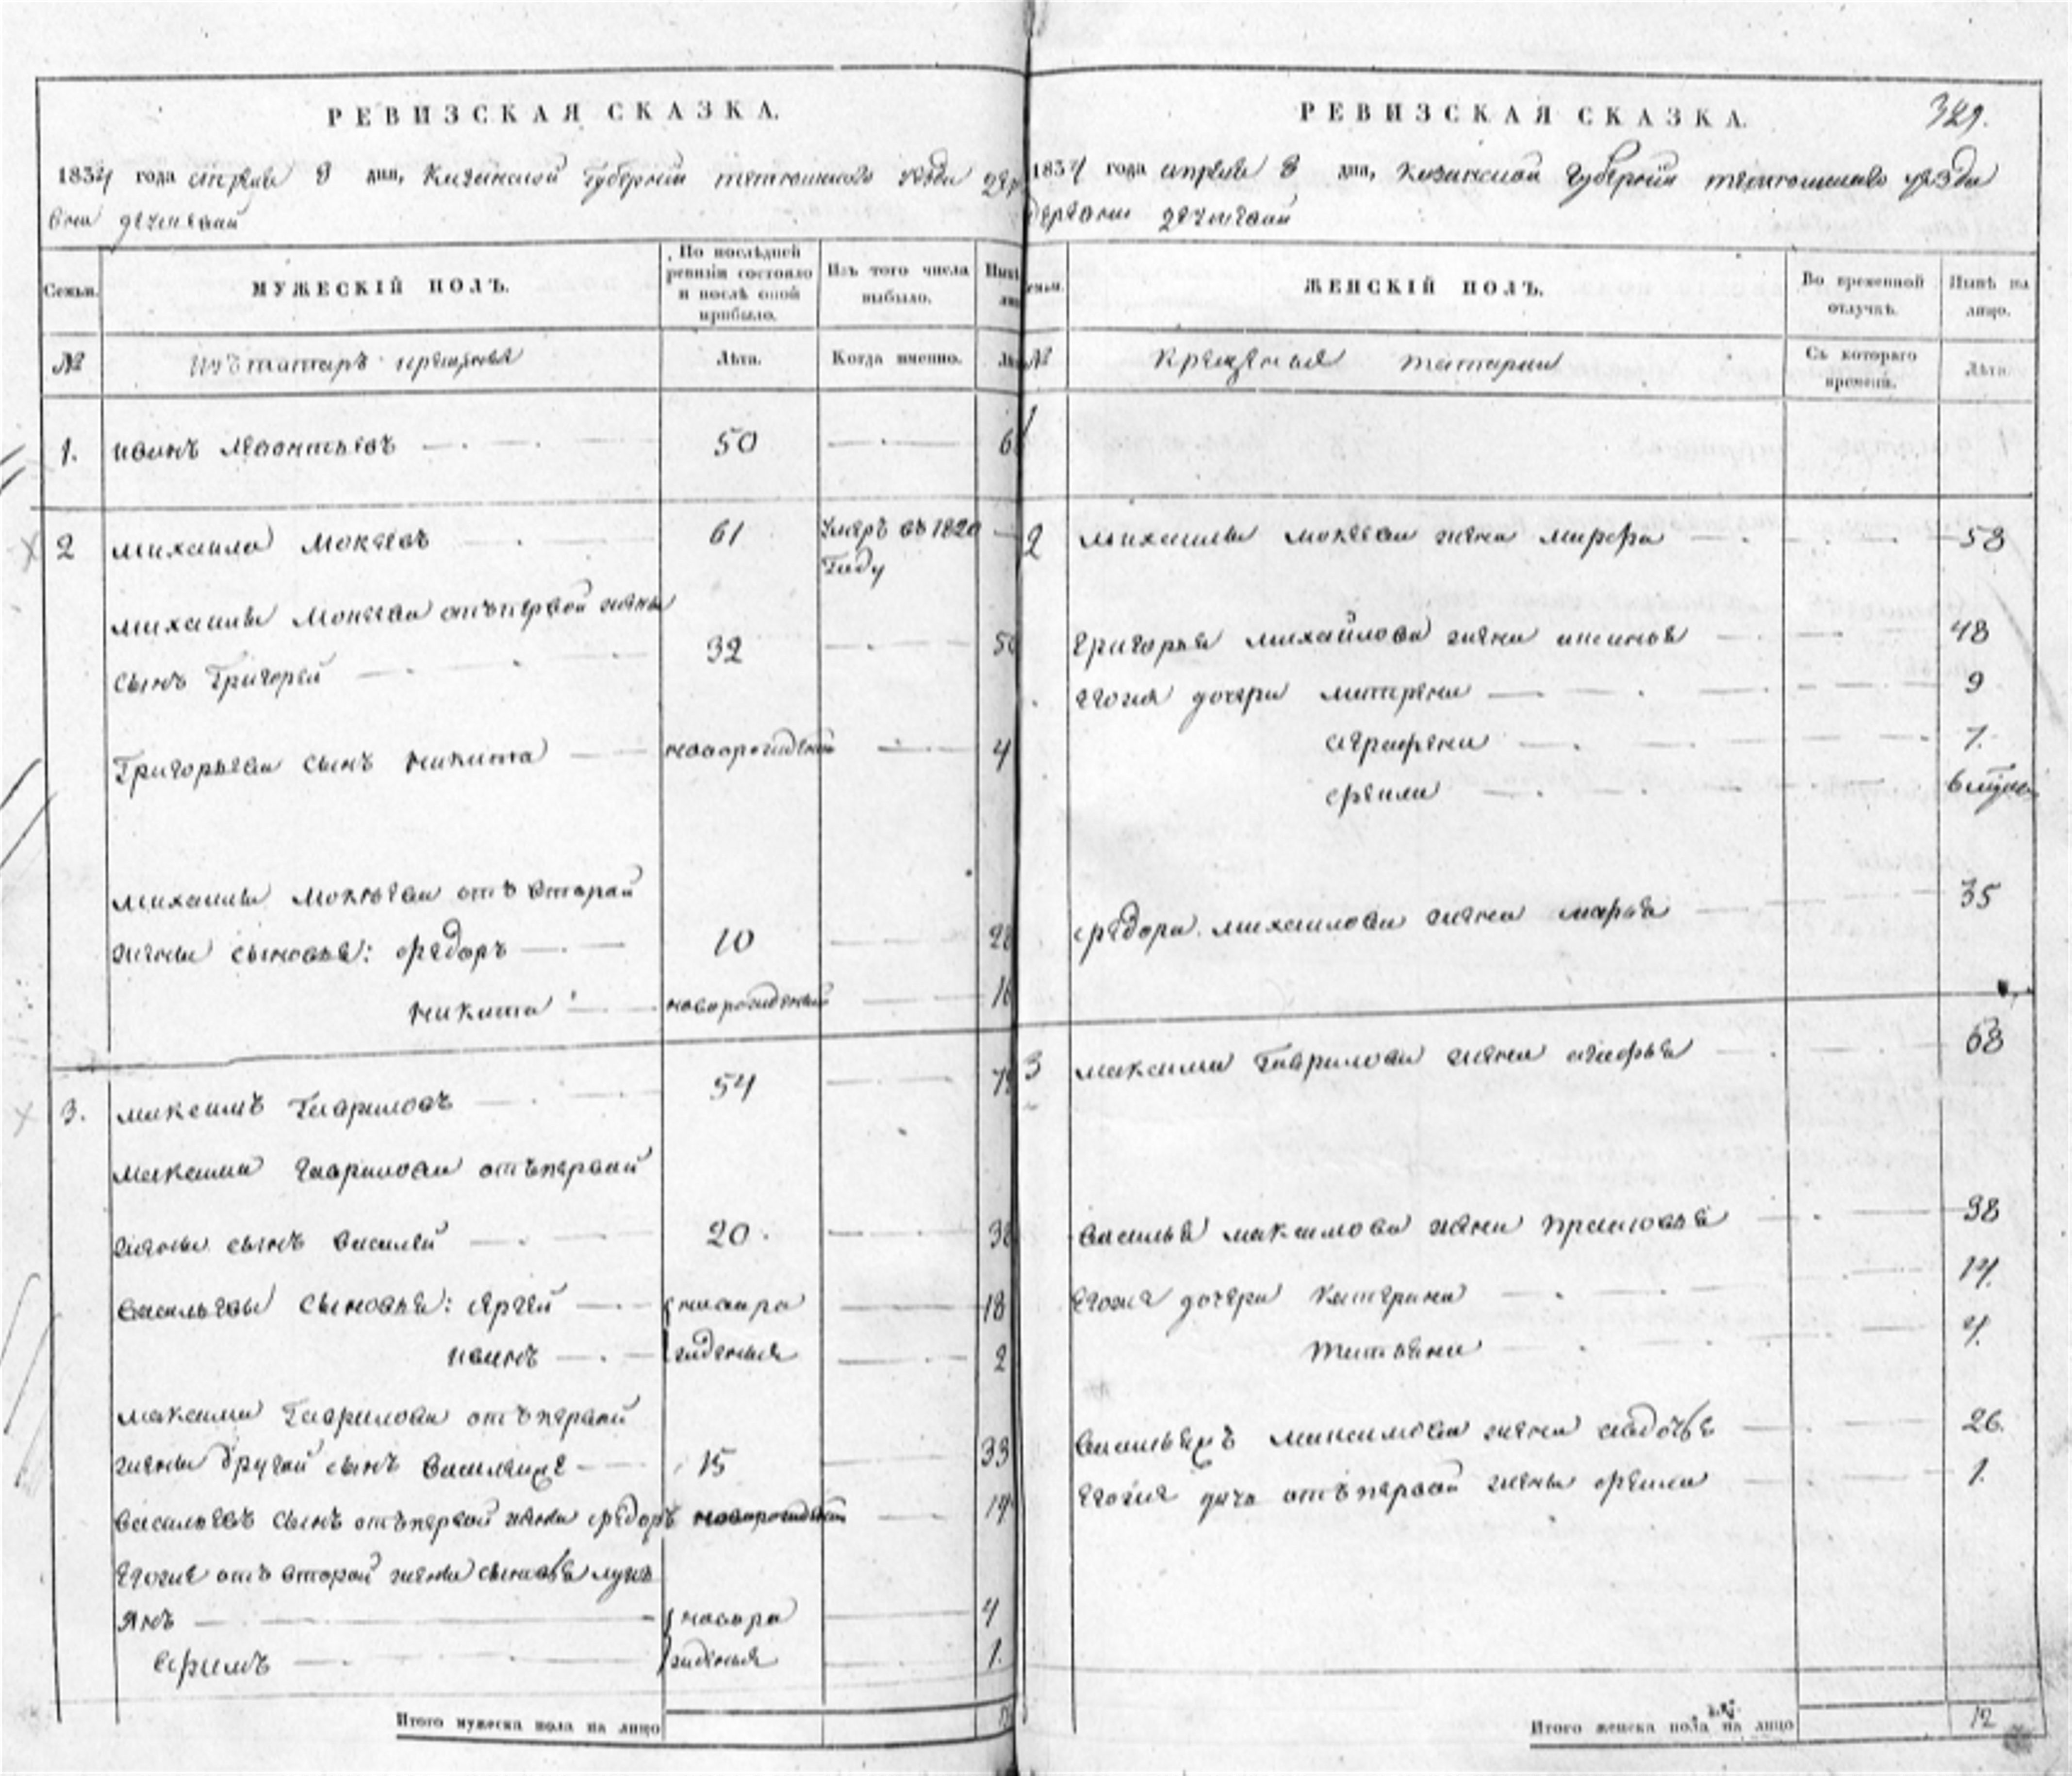 РЕВИЗСКАЯ СКАЗКА.
1834 года апреля 8 дня, Казанской Губернии тетюшскаго уезда дер
вни
Семьи.
МУЖЕСКІЙ ПОЛЪ.
По послѣдней ревизіи состояло и послѣ оной прибыло.
Изъ того числа выбыло.
Нынѣ
№
Изъ татаръ крещеныя
Лѣта.
Когда именно.
1. иванъ леонтьевъ 50
2 михаила мокеевъ 61 Умеръ въ 1820 Году
михаила мокеева отъ первой жены
сынъ Григорей 32 50
Григорьева сынъ никита новорожденный 4
михаила мокеева отъ второй
жены сыновья: федоръ 10 28
никита новорожденный 16
3. максимъ Гавриловъ 54
максима гаврилова отъ первой
жены сынъ василей 20 38
васильевы сыновья: сергей новоро 18
иванъ жденныя 2
максима Гаврилова отъ первой
жены другой сынъ 15 33
васильевъ сынъ отъ первой жены федоръ новорожденный 14
Егожъ отъ второй жены сыновья лукъ
янъ новоро 4
ефимъ жденыя 1.
Итого мужеска пола на лицо
РЕВИЗСКАЯ СКАЗКА.
329.
1834 года апреля 8 дня, казанской Губернии тетюшскаго уезда
деревни
ЖЕНСКІЙ ПОЛЪ.
Во временной отлучкѣ.
Нынѣ на лицо.
№
Крещеныя татарки
Съ котораго времени.
Лѣта
1
2 михаила мокеева жена марфа 58
Григорья михайлова жена аксинья 48
егожъ дочери матрена 9
аграфена 7.
6
федора михайлова жена марья 35
3 максима Гаврилова жена агафья 68
василья максимова жена прасковья 38
Егожъ дочери катерина 14.
татьяна 4.
максимова жена авдотья 26.
Егожъ дочь отъ первой жены 1.
Итого женска пола на лицо 12